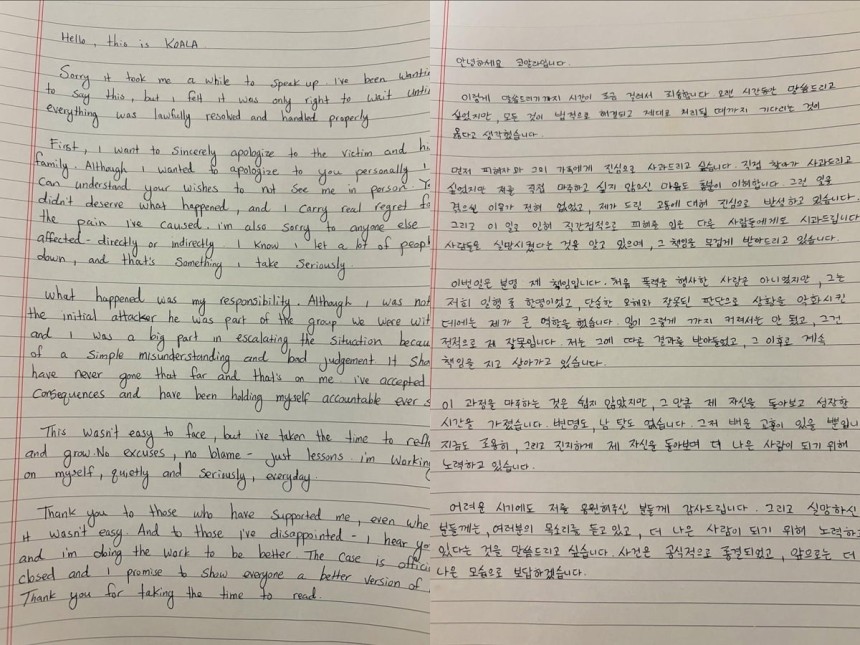 Hello, this is KOALA.
Sorry it took me a while to speak up. I've been wantin
to say this, but I felt it was only right to wait unti
everything was lawfully resolved and handled properly
First, I want to sincerely apologize to the victim and hi
family. Although I wanted to apologize to you personally I
can understand your wishes to not see me in person. Yo
didn't deserve what happened, and I carry real regret fo
the pain I've caused. i'm also sorry to anyone else
affected - directly or indirectly. I know I let a lot of peopl
down, and that's something I take seriously.
What happened was my responsibility. Although I was not
the initial attacker he was part of the group we were wit
and I was a big part in escalating the situation becau
of a simple misunderstanding and bad judgement It sho
have never gone that far and that's on me. i've accepted
consequences and have been holding myself accountable ever s
This wasn't easy to face, but ive taken the time to refl
and grow. No excuses, no blame - just lessons. i'm working
on myself, quietly and seriously, everyday.
Thank you to those who have supported me, even whe
it wasn't easy. And to those I've disappointed - I hear yo
and i'm doing the work to be better. The case is offici
closed and I promise to show everyone a better version of
Thank you for taking the time to read.
안녕하세요 코알라입니다.
이렇게 말씀드리기까지 시간이 조금 걸려서 죄송합니다. 오랜 시간동안 말씀드리고
싶었지만, 모든 것이 법적으로 해결되고 제대로 처리될 때까지 기다리는 것이
옳다고 생각했습니다.
먼저 피해자와 그의 가족에게 진심으로 사과드리고 싶습니다. 직접 찾아가 사과드리고
싶었지만 저를 직접 마주하고 싶지 않으신 마음도 충분히 이해합니다. 그런 일을
겪으실 이유가 전혀 없었고, 제가 드린 고통에 대해 진심으로 반성하고 있습니다.
그리고 이 일로 인해 직간접적으로 피해를 입은 다른 사람들에게도 사과드립니다
사람들을 실망시켰다는 것을 알고 있으며, 그 책임을 무겁게 받아드리고 있습니다.
이번일은 분명 제 책임입니다. 처음 폭력을 행사한 사람은 아니었지만, 그는
저희 일행 중 한명이었고, 단순한 오해와 잘못된 판단으로 상황을 악화시킨
데에는 제가 큰 역할을 했습니다. 일이 그렇게 까지 커져서는 안 됐고, 그건
전적으로 제 잘못입니다. 저는 그에 따른 결과를 받아들였고, 그 이후로 계속
책임을 지고 살아가고 있습니다.
이 과정을 마주하는 것은 쉽지 않았지만, 그 만큼 제 자신을 돌아보고 성장할
시간을 가졌습니다. 변명도, 남 탓도 없습니다. 그저 배운 교훈이 있을 뿐입니
지금도 조용히, 그리고 진지하게 제 자신을 돌아보며 더 나은 사람이 되기 위해
노력하고 있습니다.
어려운 시기에도 저를 응원해주신 분들께 감사드립니다. 그리고 실망하신
분들께는, 여러분의 목소리를 듣고 있고, 더 나은 사람이 되기 위해 노력하고
있다는 것을 말씀드리고 싶습니다. 사건은 공식적으로 종결되었고, 앞으로는 더
나은 모습으로 보답하겠습니다.